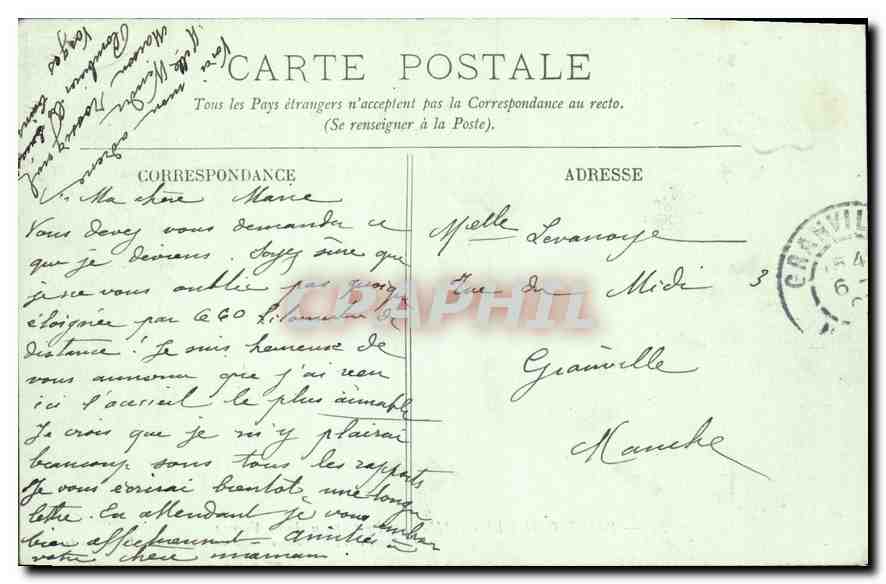 Voici mon adresse
Melle
Maison
Plombières les bains
Vosges
CARTE POSTALE
Tous les Pays étrangers n'acceptent pas la Correspondance au recto.
(Se renseigner à la Poste).
CORRESPONDANCE
ADRESSE
Ma chère Marie
Vous devez vous demander ce
que je deviens. Soyez sûre que
je ne vous oublie pas quoiqu'
éloignée par 660 kilomètres de
distance! Je suis heureuse de
vous annoncer que j'ai reçu
ici l'accueil le plus aimable
Je crois que je m'y plairai
beaucoup sous tous les rapports
Je vous écrirai bientôt une longue
lettre. En attendant je vous embrasse
bien affectueusement - amitiés à
votre chère maman.
Melle Levanoye
rue du Midi 3
Granville
Manche
GRANVILLE
CPAPHIL